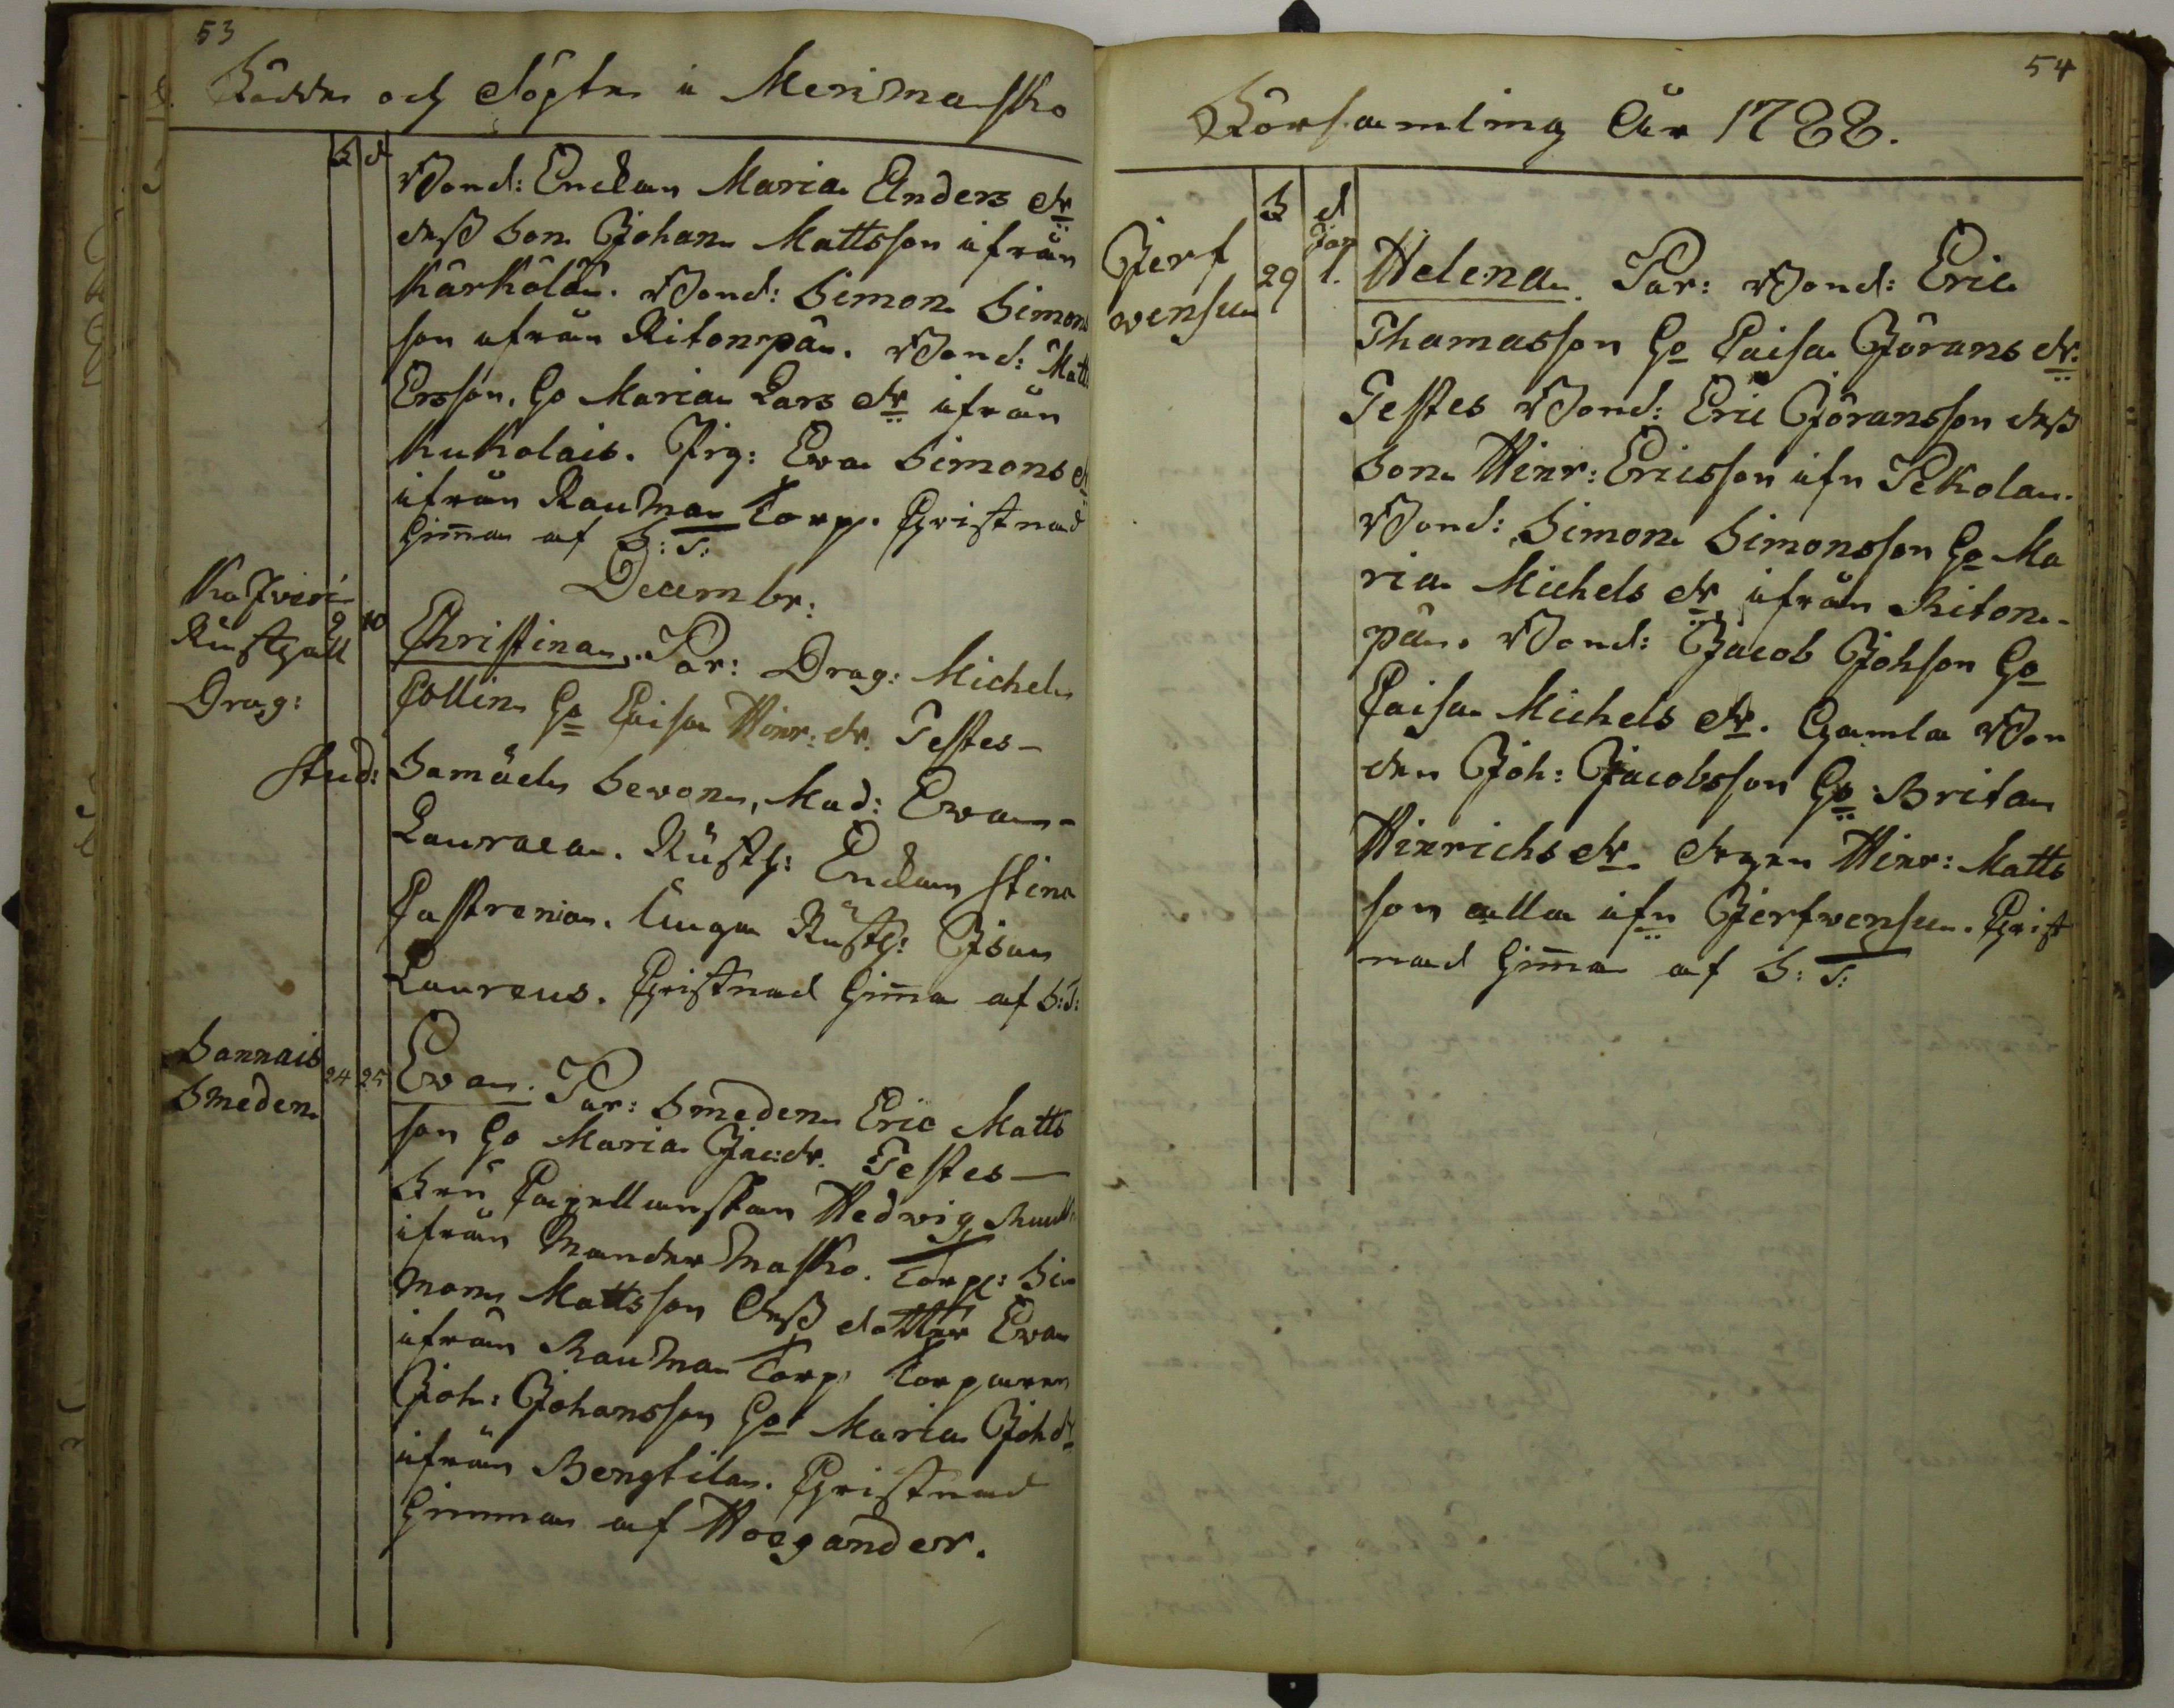 53
Födde och Döpte i Merimasko
F d
Bond: Enckan Maria Anders dr
dess Son Johan Mattsson ifrån
Kärkölä. Bond: Simon Simons
son ifrån Ritonpä. Bond: Matts
Ersson, Ho Maria Lars dr ifrån
Kukolais. Pig: Eva Simons dr
ifrån Rauma Torp. Christnad
hema af S: T:
Decembr:
Kojviri
Rusthåll
Drag:
9 10
Christina. Par: Drag: Michel
Collin Ho Caisa Hinr: dr. Testes
Stud: Samuel Sevon, Mad: Eva
Lauraea. Rusth: Enckan Stina
Castrenia. Unga Rusth: Isac
Laureus. Christnad hema af S: T:
Sannais
Smeden
24 25
Eva. Par: Smeden Eric Matts
son Ho Maria Jac: dr. Testes
Fru Capellanskan Hedvig
ifrån Wandermasko. Torp: Si
mon Mattsson dess dotter Eva
ifrån Rauma Torp Torparen
Joh: Johansson Ho Maria Joh dr
ifrån Bengtila. Christnad
himma af Hoegander.
54
Församling År 1788.
F d
Jerf
wensu
29
Jan
1.
Helena. Par: Bond: Eric
Thomasson Ho Caisa Görans dr.
Testes Bond: Eric Göransson dess
Son Hinr: Ericsson ifn Pekola.
Bond: Simon Simonsson Ho Ma
ria Michels dr ifrån Riton-
pä. Bond: Jacob Johson Ho
Caisa Michels dr. Gamla Bon
den Joh: Jacobsson Ho Brita
Hinrichs dr. Drgen Hinr: Matts
son alla ifn Jerfwensu. Christ
nad hema af S: T: